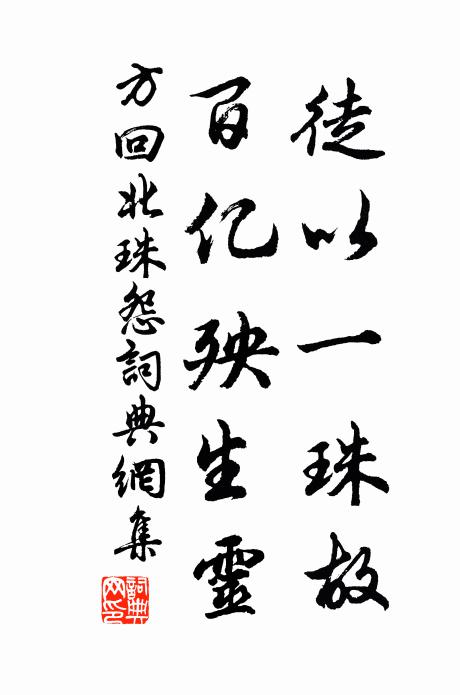 徒以一珠故
百亿殃生靈
方回北珠怨詞典網集
詞典网印